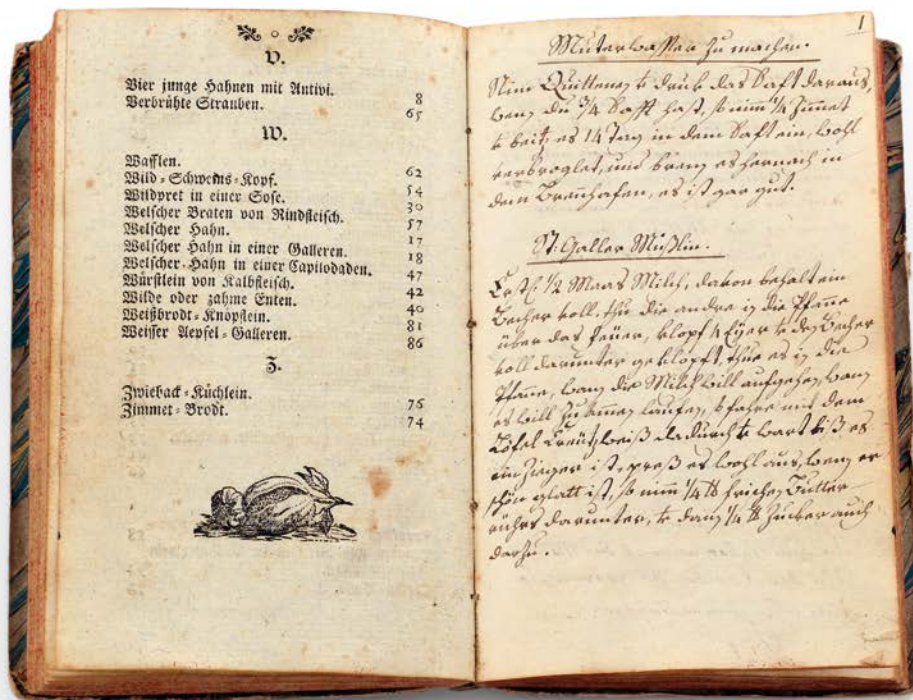 V.
Vier junge Hahnen mit Antivi. 8
Verbrühte Strauben. 65
W.
Wafflen. 62
Wild-Schweins-Kopf. 54
Wildpret in einer Sose. 30
Welscher Braten von Rindfleisch. 57
Welscher Hahn. 17
Welscher Hahn in einer Galleren. 18
Welscher-Hahn in einer Capilodaden. 47
Würstlein von Kalbfleisch. 42
Wilde oder zahme Enten. 40
Weißbrodt-Knöpflein. 81
Weisser Aepfel-Galleren. 86
Z.
Zwieback-Küchlein. 76
Zimmet-Brodt. 74
1
zu machen.
Nim Quittenen & druk das Safft daraus,
wenn du 3/4 Safft hast, so nimm 1/4 Zimmet
& beitz es 14 Tag in dem Safft ein, wohl
und brenn es hernach in
dem Brennhafen, es ist gar gut.
St: Galler Müßlin.
1/2 Maas Milch, davon behalt ein
Becher voll, thu die andre in die Pfanne
über das Feüer, klopf 4 Eÿer & den Becher
voll darunter geklopft, thue es in die
Pfanne, wann die Milch will aufgehen, wann
es will zusammen lauffen, so fahre mit dem
Löfel Creütz weiß dadurch & wart biß es
ein Zieger ist, preß es wohl aus, wenn er
schön glatt ist, so nimm 1/4 ℔ frischen Butter
rührs darunter, & dann 1/4 ℔ Zucker auch
darzu.